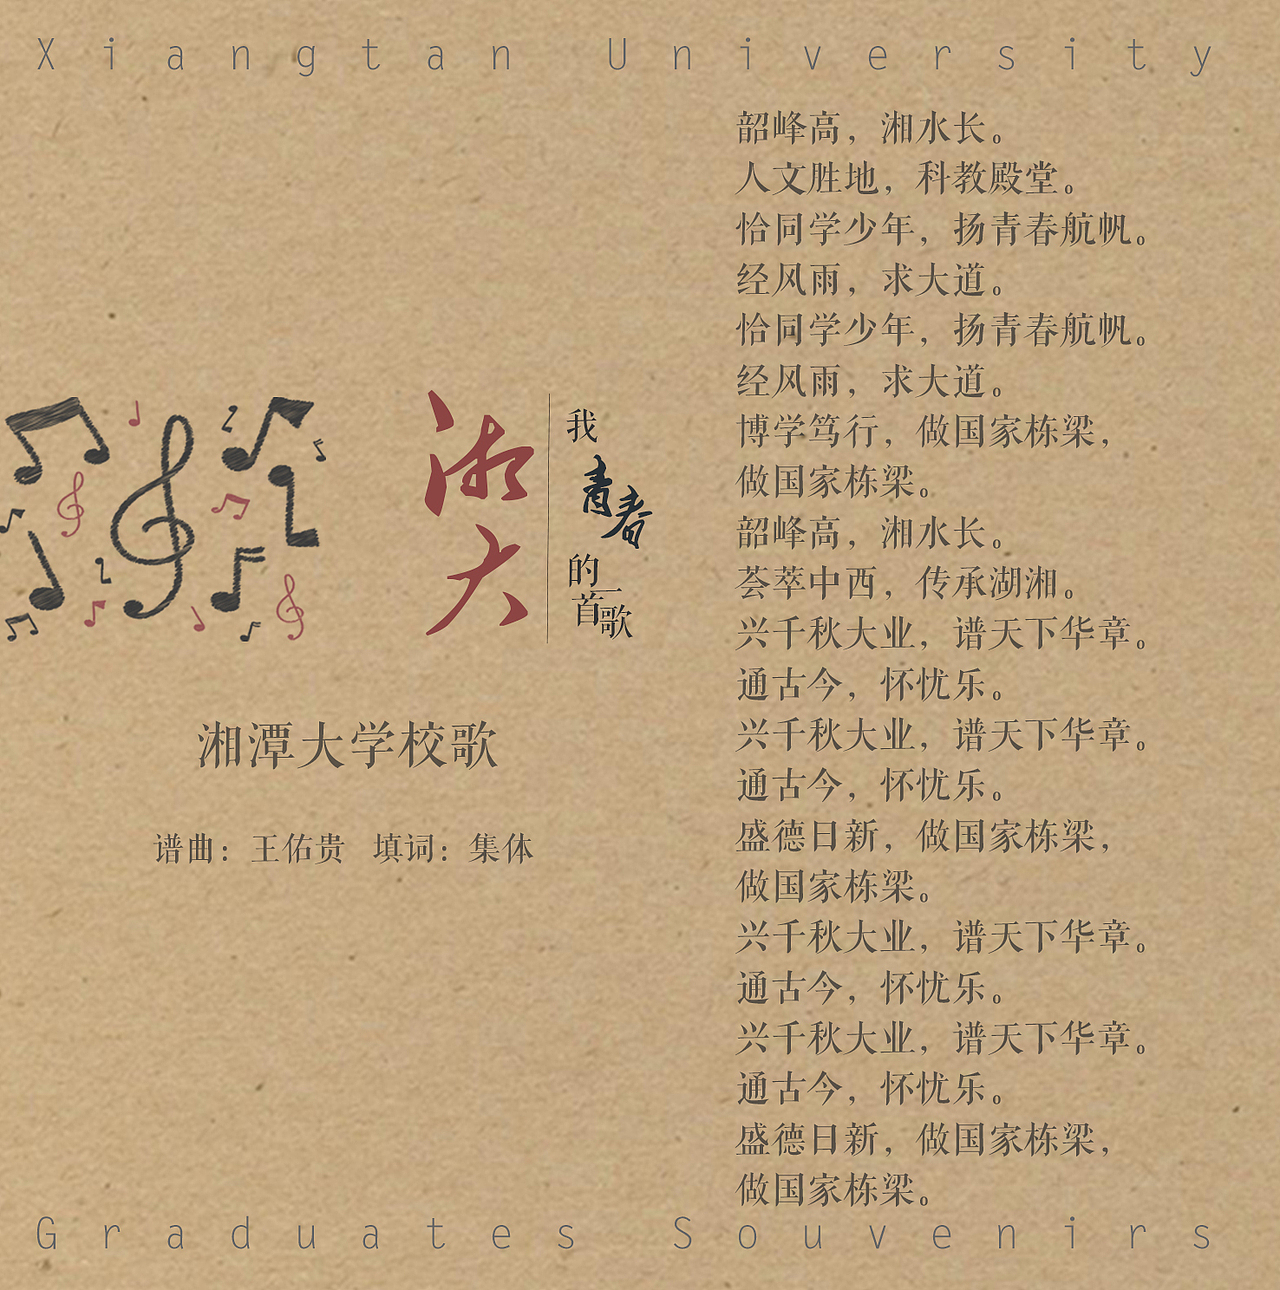 Xiangtan University
湘大
我
青春
的一
首歌
湘潭大学校歌
谱曲：王佑贵 填词：集体
韶峰高，湘水长。
人文胜地，科教殿堂。
恰同学少年，扬青春航帆。
经风雨，求大道。
恰同学少年，扬青春航帆。
经风雨，求大道。
博学笃行，做国家栋梁，
做国家栋梁。
韶峰高，湘水长。
荟萃中西，传承湖湘。
兴千秋大业，谱天下华章。
通古今，怀忧乐。
兴千秋大业，谱天下华章。
通古今，怀忧乐。
盛德日新，做国家栋梁，
做国家栋梁。
兴千秋大业，谱天下华章。
通古今，怀忧乐。
兴千秋大业，谱天下华章。
通古今，怀忧乐。
盛德日新，做国家栋梁，
做国家栋梁。
Graduates Souvenirs